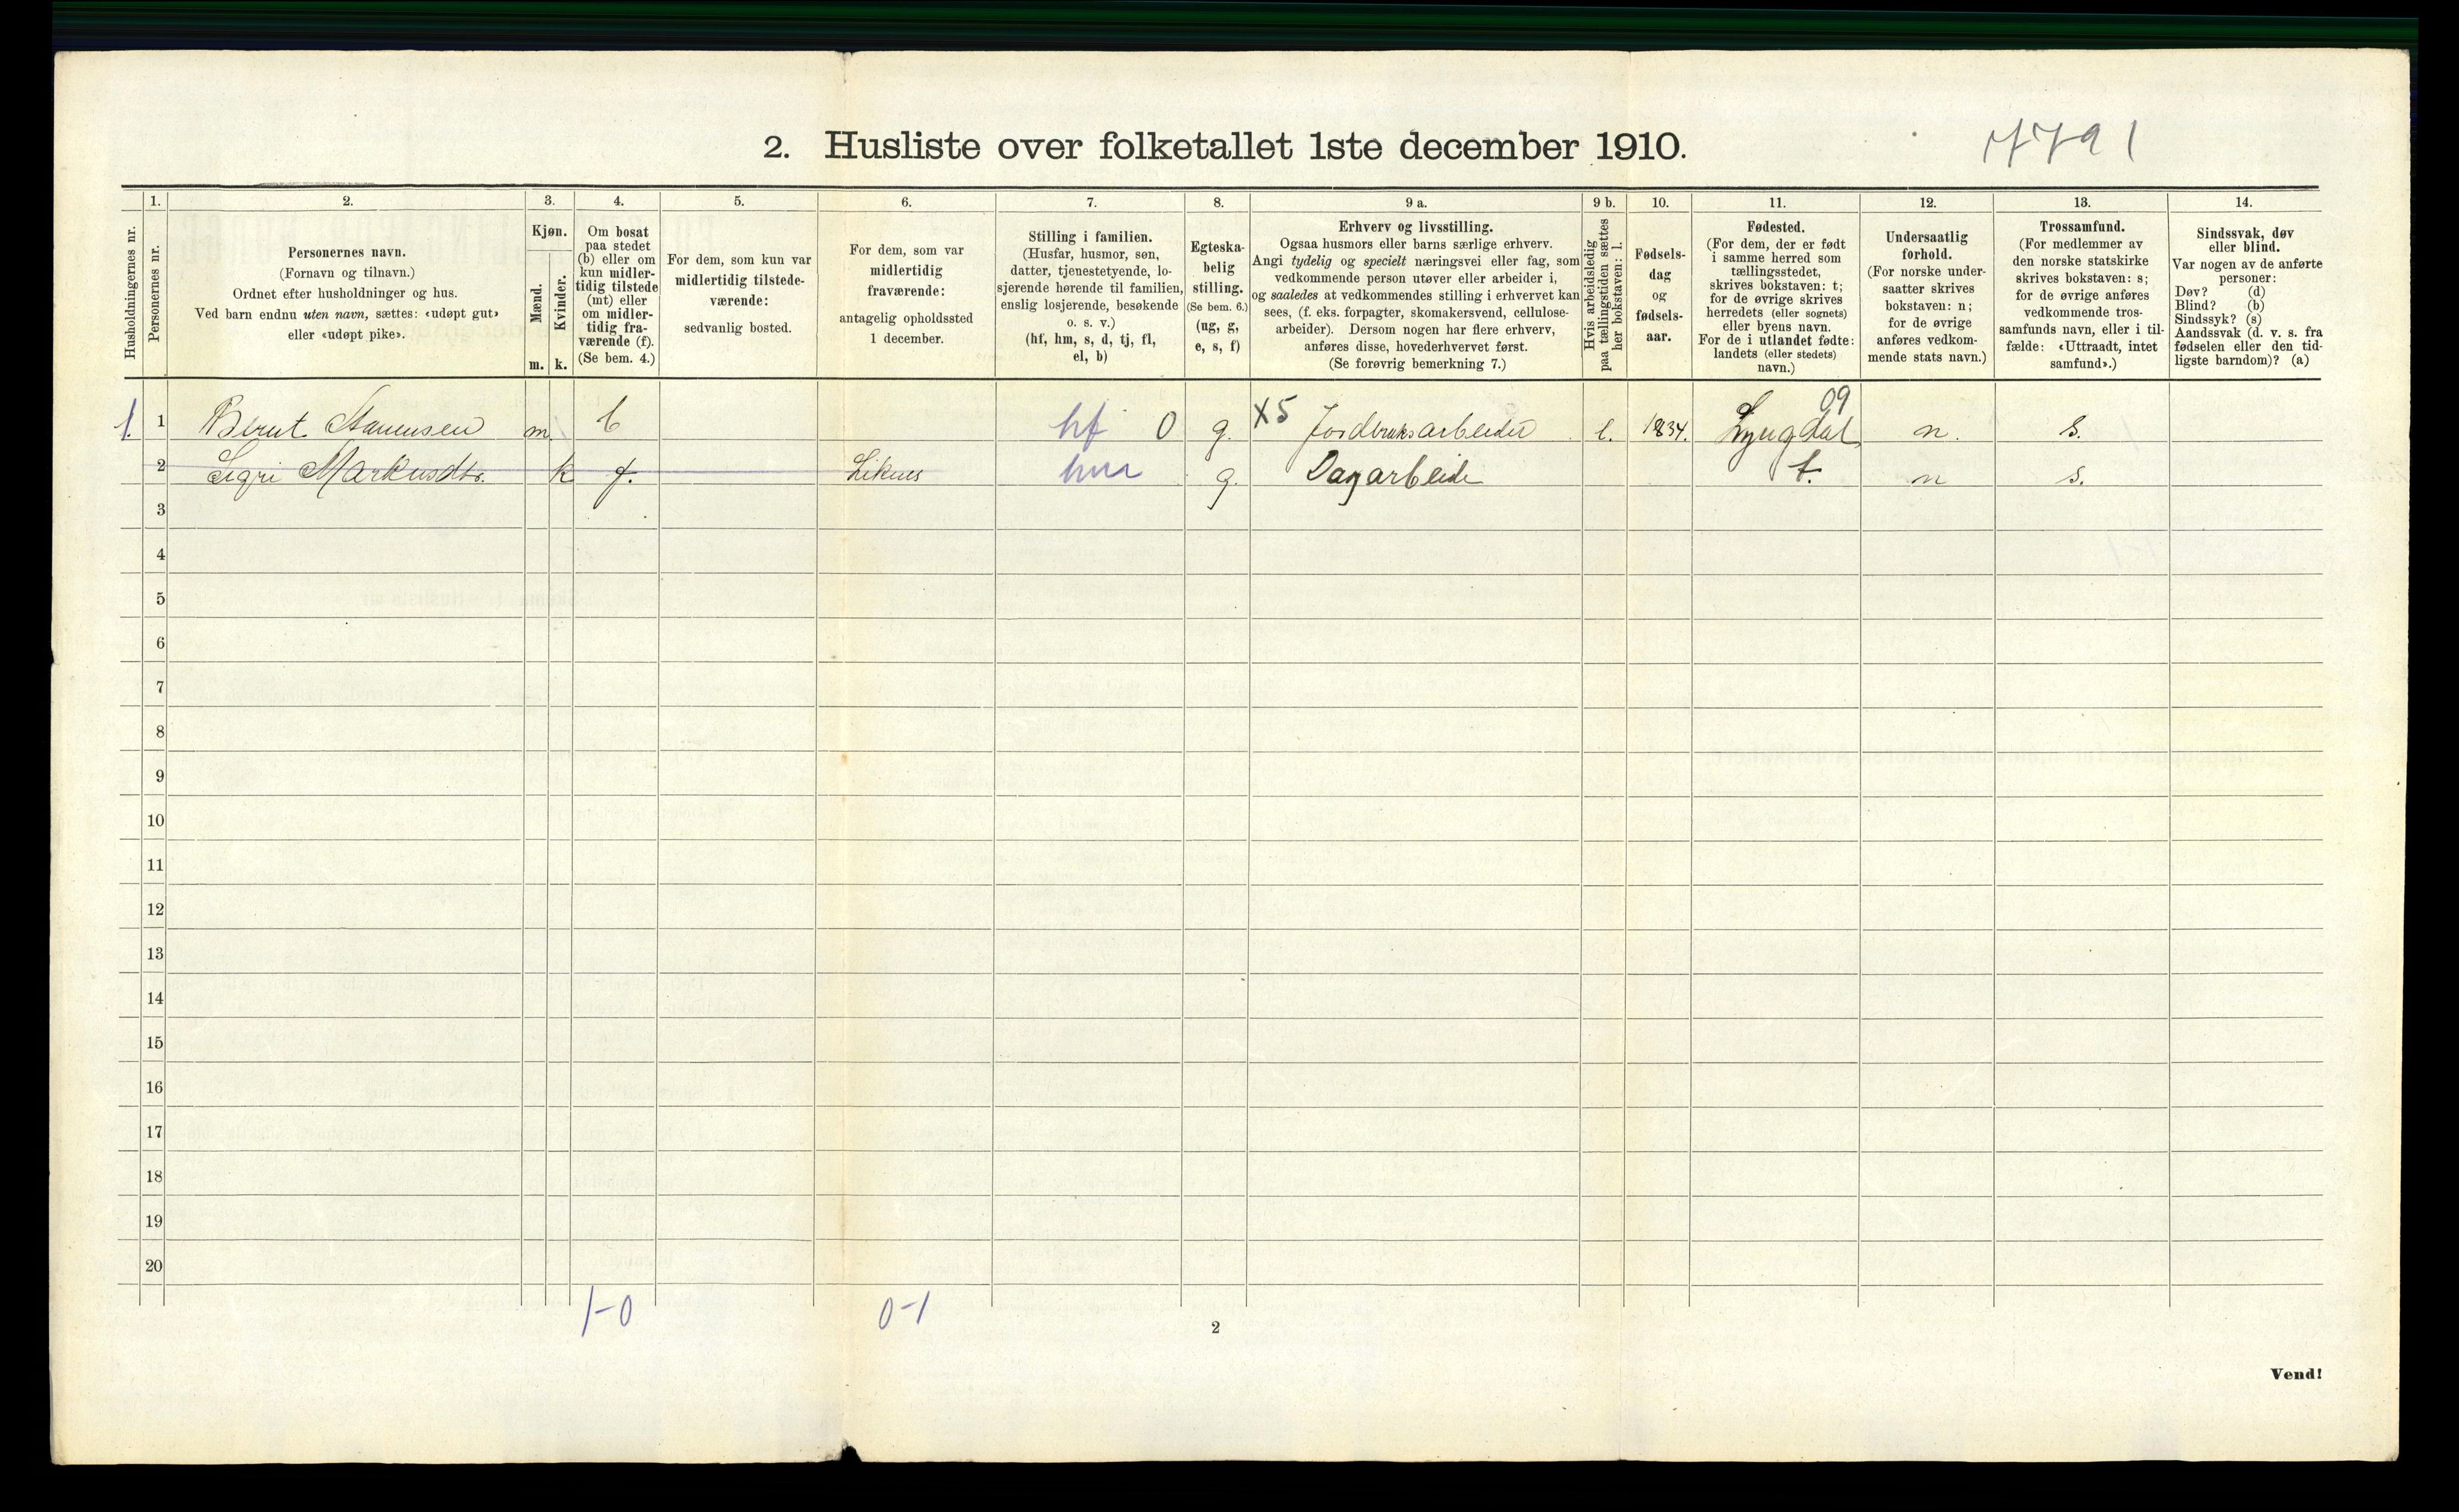 2. Husliste over folketallet 1ste december 1910.
7791
Husholdningernes nr.
1.
Personernes nr.
2.
Personernes navn.
(Fornavn og tilnavn.)
Ordnet efter husholdninger og hus.
Ved barn endnu uten navn, sættes: «udøpt gut»
eller «udøpt pike».
3.
Kjøn.
Mænd.
Kvinder.
m. k.
4.
Om bosat
paa stedet
(b) eller om
kun midler-
tidig tilstede
(mt) eller
om midler-
tidig fra-
værende (f).
(Se bem. 4.)
5.
For dem, som kun var
midlertidig tilstede-
værende:
sedvanlig bosted.
6.
For dem, som var
midlertidig
fraværende:
antagelig opholdssted
1 december.
7.
Stilling i familien.
(Husfar, husmor, søn,
datter, tjenestetyende, lo-
sjerende hørende til familien,
enslig losjerende, besøkende
o. s. v.)
(hf, hm, s, d, tj, fl,
el, b)
8.
Egteska-
belig
stilling.
(Se bem. 6.)
(ug, g,
e, s, f)
9 a.
Erhverv og livsstilling.
Ogsaa husmors eller barns særlige erhverv.
Angi tydelig og specielt næringsvei eller fag, som
vedkommende person utøver eller arbeider i,
og saaledes at vedkommendes stilling i erhvervet kan
sees, (f. eks. forpagter, skomakersvend, cellulose-
arbeider). Dersom nogen har flere erhverv,
anføres disse, hovederhvervet først.
(Se forøvrig bemerkning 7.)
9 b.
Hvis arbeidsledig
paa tællingstiden sættes
her bokstaven: l.
10.
Fødsels-
dag
og
fødsels-
aar.
11.
Fødested.
(For dem, der er født
i samme herred som
tællingsstedet,
skrives bokstaven: t;
for de øvrige skrives
herredets (eller sognets)
eller byens navn.
For de i utlandet fødte:
landets (eller stedets)
navn.)
12.
Undersaatlig
forhold.
(For norske under-
saatter skrives
bokstaven: n;
for de øvrige
anføres vedkom-
mende stats navn.)
13.
Trossamfund.
(For medlemmer av
den norske statskirke
skrives bokstaven: s;
for de øvrige anføres
vedkommende tros-
samfunds navn, eller i til-
fælde: «Uttraadt, intet
samfund».)
14.
Sindssvak, døv
eller blind.
Var nogen av de anførte
personer:
Døv? (d)
Blind? (b)
Sindssyk? (s)
Aandssvak (d. v. s. fra
fødselen eller den tid-
ligste barndom)? (a)
1. 1 Bernt m b hf 0 g. X5 Jordbruksarbeider l. 1834. Lyngdal 09 n. s.
2 Sigri Markusdtr. k f. Liknes hm g. Dagarbeide t. n s.
3
4
5
6
7
8
9
10
11
12
13
14
15
16
17
18
19
20
1-0 0-1
2
Vend!